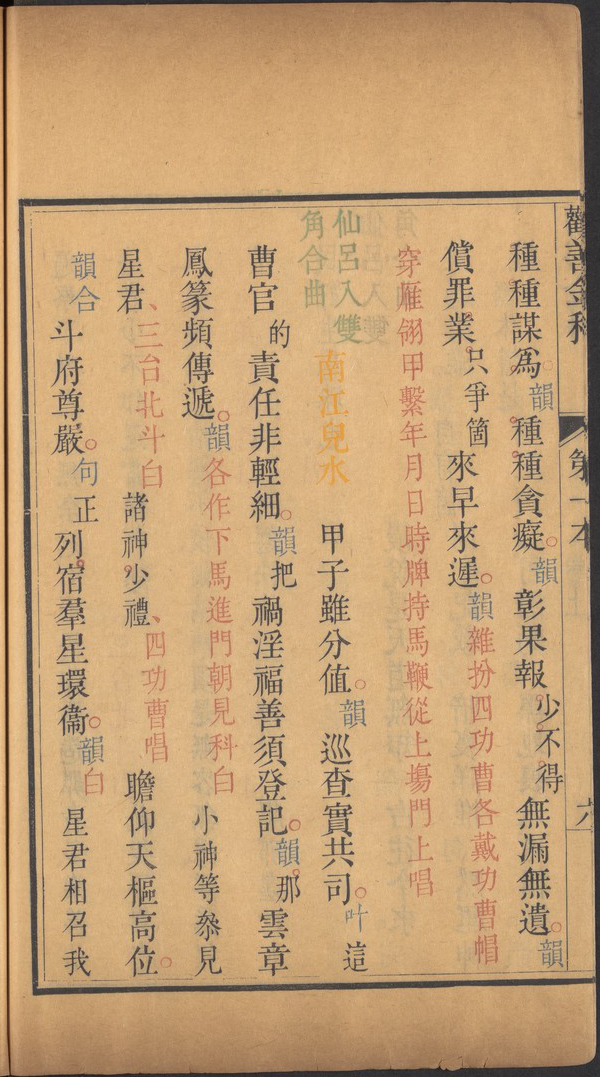 勸善金科
第一本
六
種種謀爲。韻種種貪癡。韻彰果報少不得無漏無遺。韻
償罪業。只爭箇來早來遲。韻雜扮四功曹各戴功曹帽
穿雁翎甲繫年月日時牌持馬鞭從上場門上唱
仙呂入雙角合曲
南江兒水
甲子雖分值。韻巡查實共司。叶這
曹官的責任非輕細。韻把禍淫福善須登記。韻那雲章
鳳篆頻傳遞。韻各作下馬進門朝見科白小神等叅見
星君、三台北斗白諸神少禮、四功曹唱瞻仰天樞高位。
韻合斗府尊嚴。句正列宿羣星環衞。韻白星君相召我